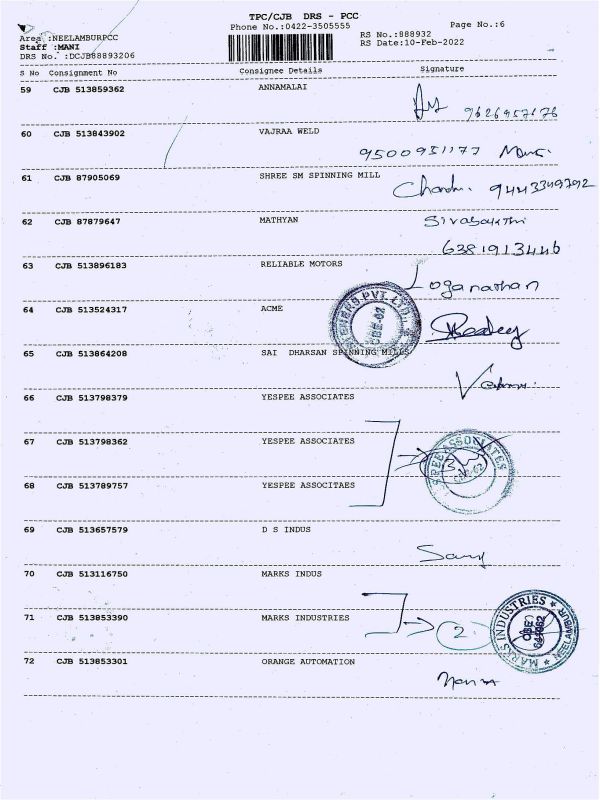 TPC/CJB DRS - PCC
Phone No.:0422-3505555
Page No.:6
Area :NEELAMBURPCC
Staff :MANI
DRS No. :DCJB88893206
RS No.:888932
RS Date:10-Feb-2022
S No Consignment No Consignee Details Signature
59 CJB 513859362 ANNAMALAI
9626957176
60 CJB 513843902 VAJRAA WELD
9500951177
61 CJB 87905069 SHREE SM SPINNING MILL
9443349792
62 CJB 87879647 MATHYAN
6381913446
63 CJB 513896183 RELIABLE MOTORS
Loganathan
64 CJB 513524317 ACME
65 CJB 513864208 SAI DHARSAN SPINNING MILLS
66 CJB 513798379 YESPEE ASSOCIATES
67 CJB 513798362 YESPEE ASSOCIATES
68 CJB 513789757 YESPEE ASSOCITAES
69 CJB 513657579 D S INDUS
70 CJB 513116750 MARKS INDUS
71 CJB 513853390 MARKS INDUSTRIES
2
MARKS INDUSTRIES
72 CJB 513853301 ORANGE AUTOMATION